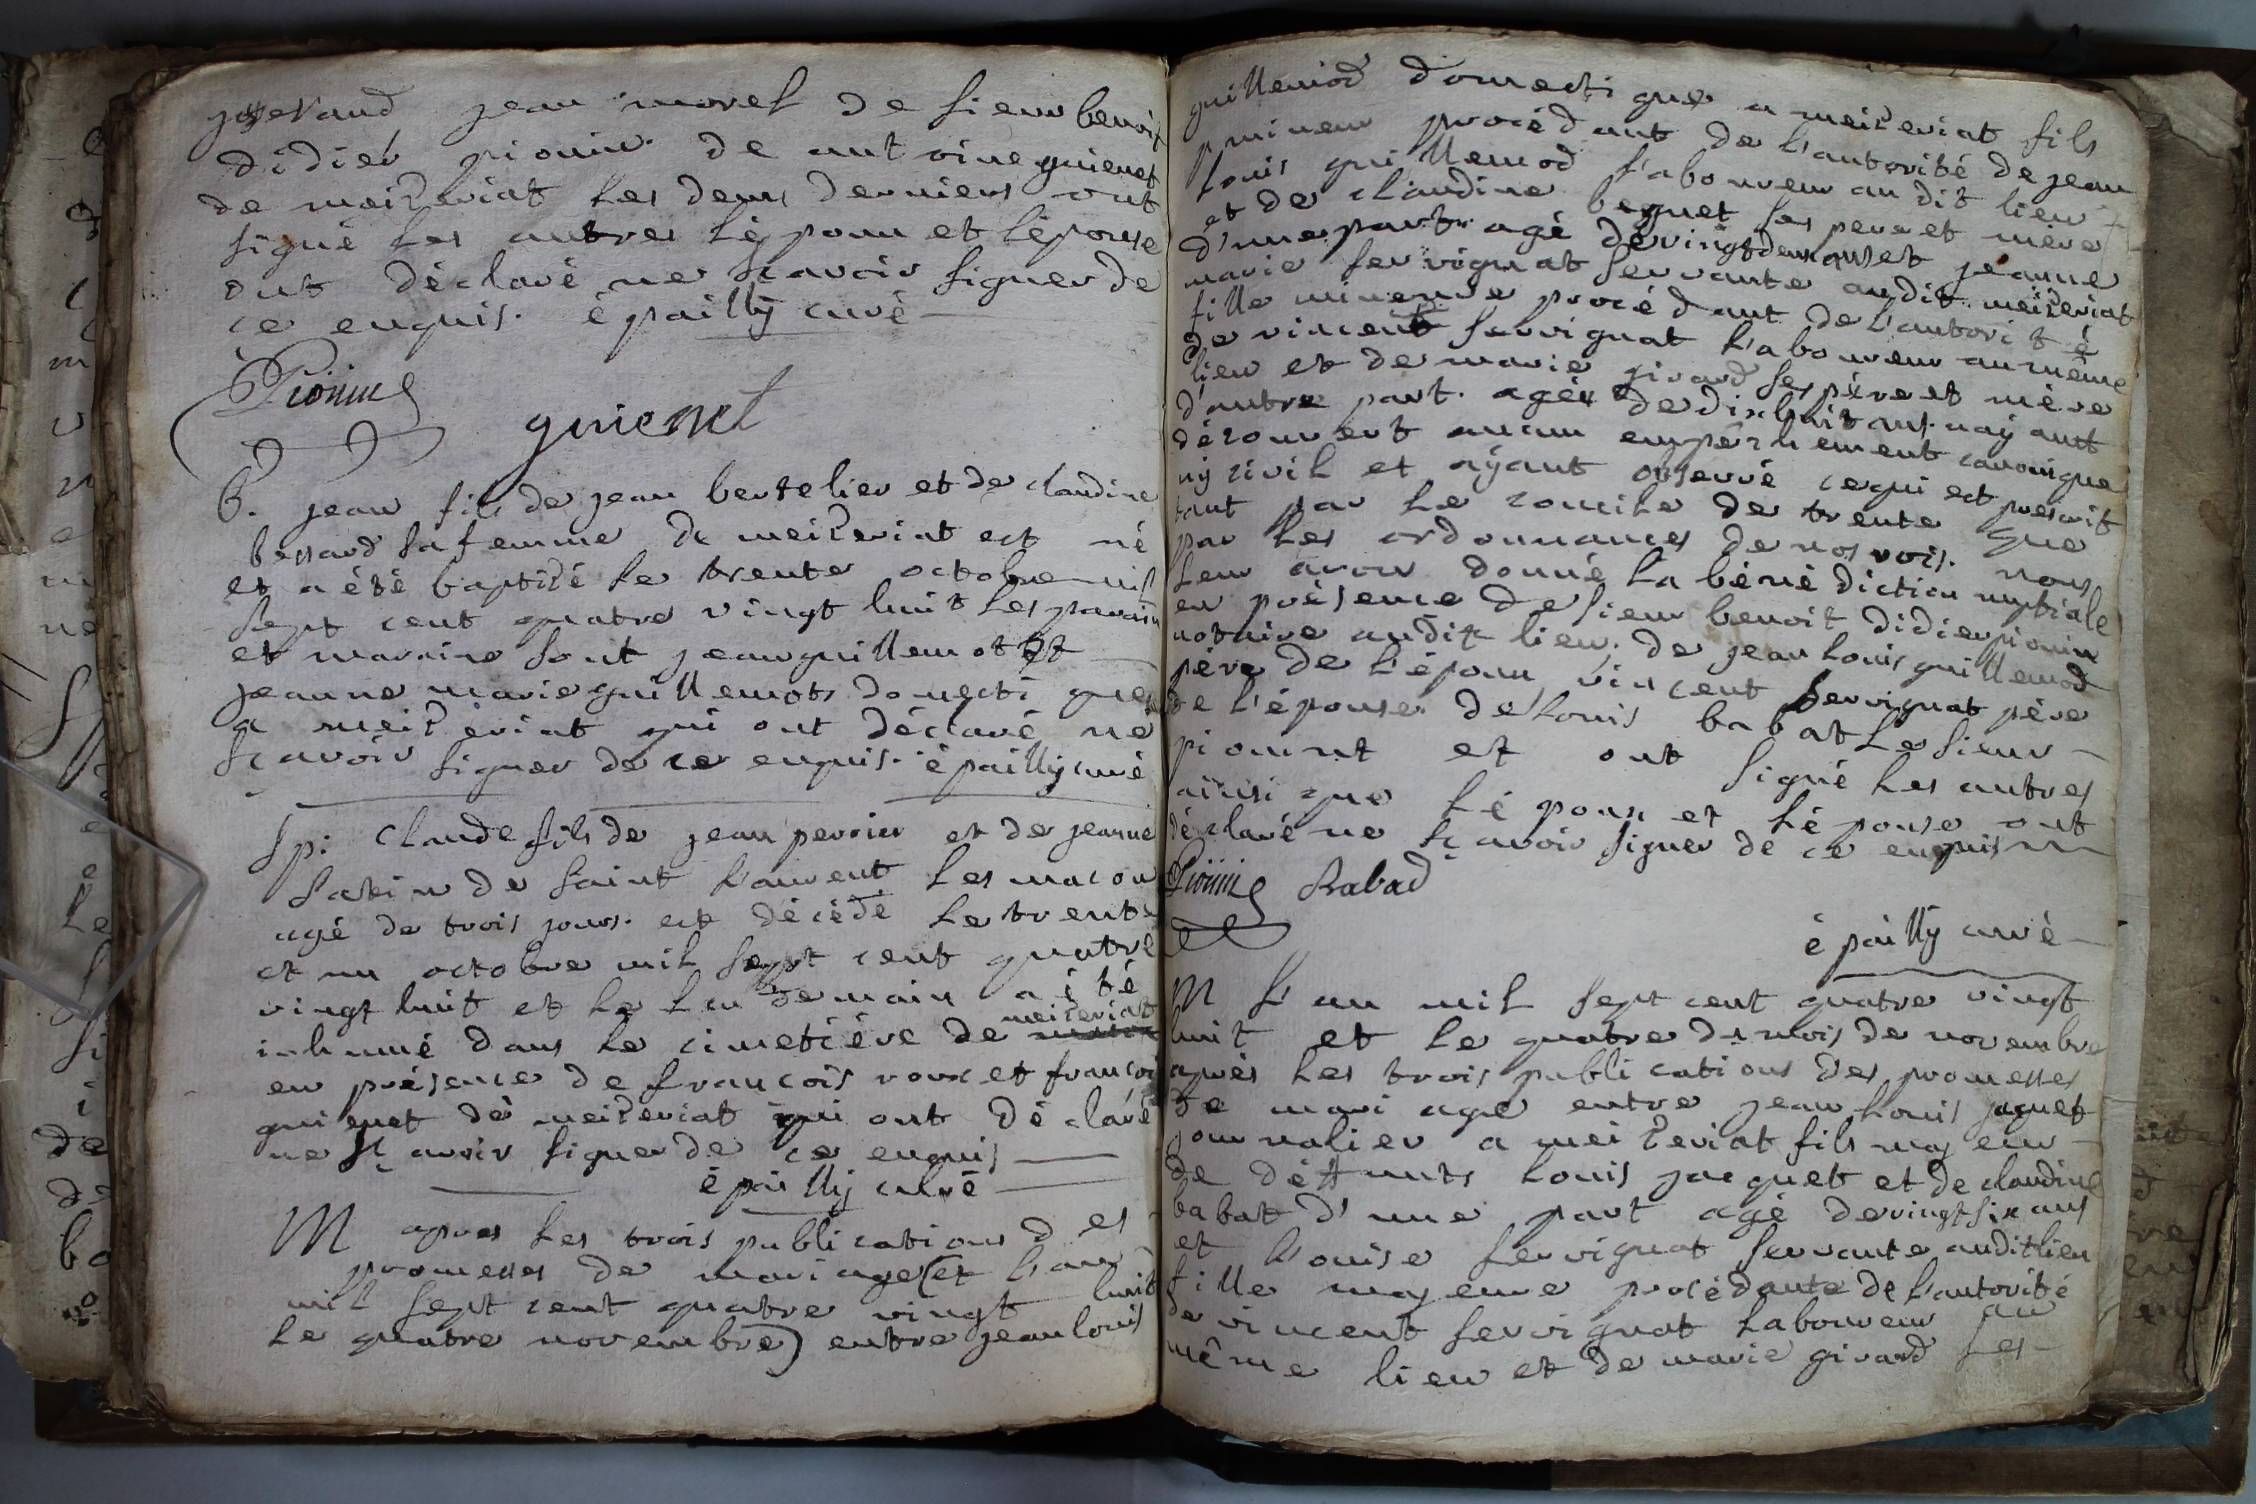 jean morel de sieur benoit
didier pionin de antoine guienet
de meizeriat les deux derniers ont
signé les autres l'époux et l'épouse
ont déclaré ne sçavoir signer de
ce enquis. épailly curé
Pionin
guienet
B. jean fils de jean bertelier et de claudine
bessard sa femme de meizeriat est né
et a été baptizé le trente octobre mil
sept cent quatre vingt huit les parain
et maraine sont jean guillemot et
jeanne marie guillemots domestiques
a meizeriat qui ont déclaré ne
sçavoir signer de ce enquis. épailly curé
Sp: claude fils de jean perrier et de jeanne
de saint laurent les macon
agé de trois jours. est décédé le trente
et un octobre mil sept cent quatre
vingt huit et le lendemain a été
meizeriat
inhumé dans le cimetiére de
en présence de francois roux et francois
guienet de meizeriat qui ont déclaré
ne sçavoir signer de ce enquis
épailly curé
M apres les trois publications des
promesses de mariage (et l'an
mil sept cent quatre vingt huit
le quatre novembre) entre jean louis
guillemod domestique a meizeriat fils
mineur procédant de l'autorité de jean
louis guillemod laboureur au dit lieu
et de claudine beguet ses pere et mère
d'une part. agé de vingt deux ans et jeanne
marie servignat servante audit meizeriat
fille mineure procédant de l'autorité
de vincent servignat laboureur au même
lieu et de marie girard ses père et mère
d'autre part. agée de dixhuit ans. nayant
découvert aucun empéchement canonique
ny civil et ayant observé ce qui est prescrit
tant par le concile de trente que
par les ordonnances de nos rois. nous
leur avons donné la bénédiction nuptiale
en présence de sieur benoit didier pionin
notaire audit lieu. de jean louis guillemod
père de l'époux vincent servignat père
de l'épouse de louis babat le sieur
pionint et ont signé les autres
ainsi que l'époux et l'épouse ont
déclaré ne sçavoir signer de ce enquis
Pionin Babad
épailly curé
M L'an mil sept cent quatre vingt
huit et le quatre du mois de novembre
après les trois publications des promesses
de mariage entre jean louis jaquet
journalier a meizeriat fils majeur
de défunts louis jacquet et de claudine
babat d'une part agé de vingt six ans
et Louise servignat servante audit lieu
fille majeure procédante de l'autorité
de vincent servignat laboureur au
même lieu et de marie girard ses